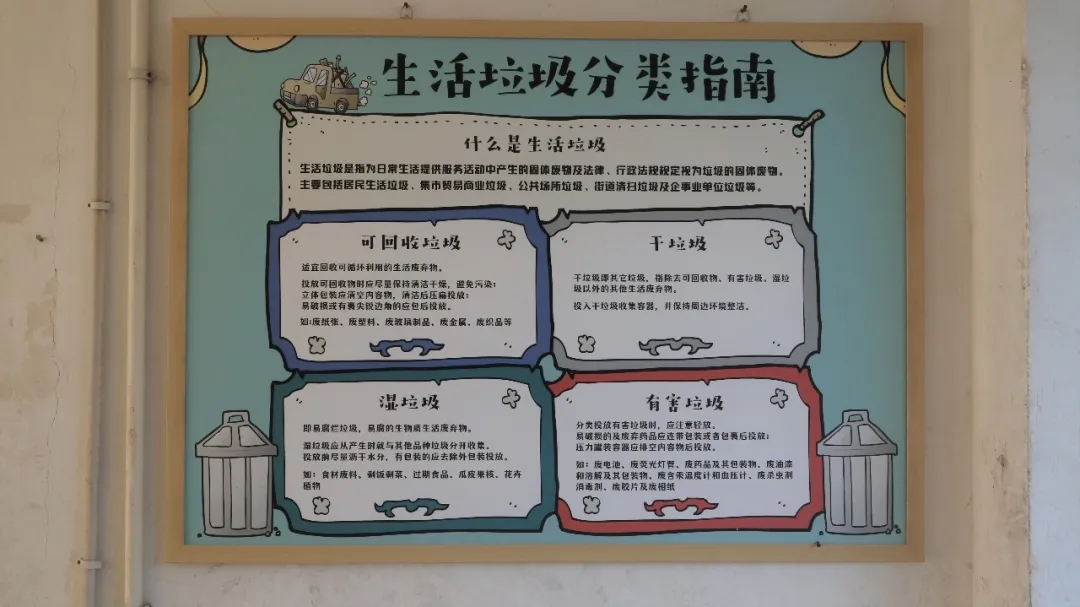 生活垃圾分类指南
什么是生活垃圾
生活垃圾是指为日常生活提供服务活动中产生的固体废物及法律、行政法规规定视为垃圾的固体废物。
主要包括居民生活垃圾、集市贸易商业垃圾、公共场所垃圾、街道清扫垃圾及企事业单位垃圾等。
可回收垃圾
适宜回收可循环利用的生活废弃物。
投放可回收物时应尽量保持清洁干燥，避免污染：
立体包装应清空内容物，清洁后压扁投放：
易破损或有裹尖锐边角的应包后投放。
如:废纸张、废塑料、废玻璃制品、废金属、废织品等
干垃圾
干垃圾即其它垃圾，指除去可回收物、有害垃圾、湿垃
圾以外的其他生活废弃物。
投入干垃圾收集容器，并保持周边环境整洁。
湿垃圾
即易腐烂垃圾，易腐的生物质生活废弃物。
湿垃圾应从产生时就与其他品种垃圾分开收集。
投放前尽量沥干水分，有包装的应去除外包装投放。
如：食材废料、剩饭剩菜、过期食品、瓜皮果核、花卉
植物
有害垃圾
分类投放有害垃圾时，应注意轻放。
易破损的及废弃药品应连带包装或者包裹后投放：
压力罐装容器应排空内容物后投放。
如：废电池、废荧光灯管、废药品及其包装物、废油漆
和溶解及其包装物、废含汞温度计和血压计、废杀虫剂
消毒剂、废胶片及废相纸